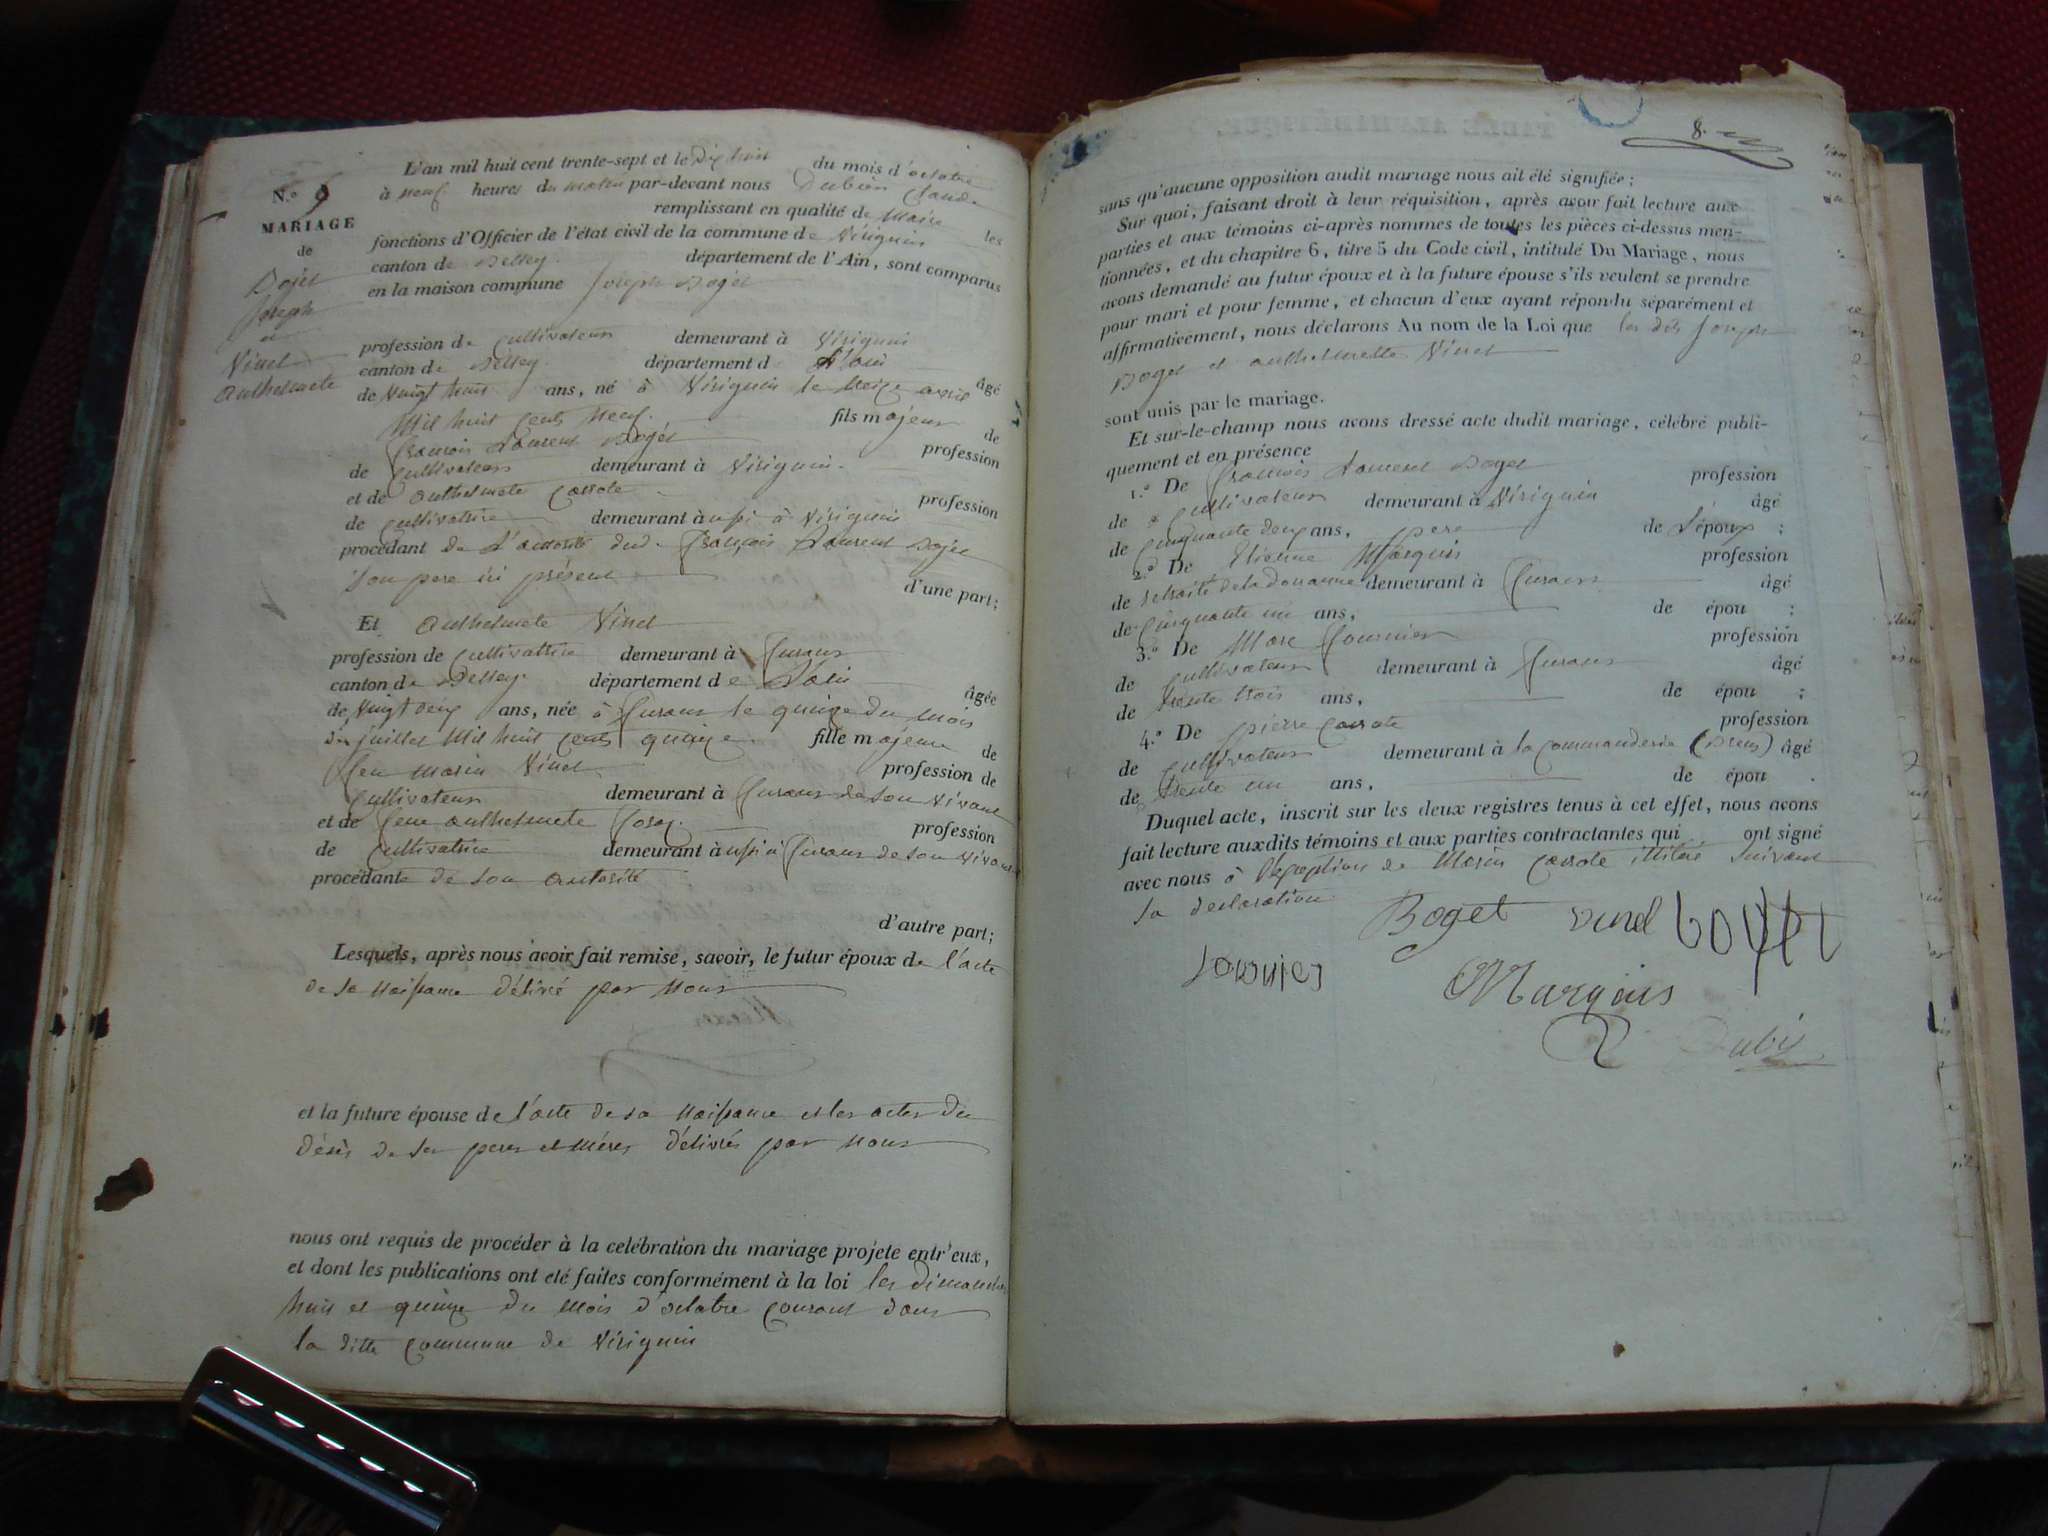 N.o 9
MARIAGE
de
Bojet
Joseph
et
Vinet
Anthelmete
L'an mil huit cent trente-sept et le dix huit du mois d'octobre
à neuf heures du matin par-devant nous Dubien Claude
remplissant en qualité de Maire les
fonctions d'Officier de l'état civil de la commune de Virignin
canton de Belley département de l'Ain, sont comparus
en la maison commune Joseph Bojet
profession de cultivateur demeurant à Virignin
canton de Belley département de l'ain
âgé
de vingt huit ans, né à Virignin le treize avril
Mil huit cents neuf fils majeur de
françois Laurent Bojet profession
de cultivateur demeurant à Virignin.
et de anthelmete Carrole profession
de cultivatrice demeurant aussi à Virignin
procédant de L'autorité dud. françois Laurent Bojet
son pere ici présent
d'une part;
Et Anthelmete Vinet
profession de cultivatrice demeurant à
canton de Belley département de L'ain âgée
de vingt deux ans, née à le quinze du mois
de juillet Mil huit cents quinze fille majeure de
feu Marin Vinet profession de
cultivateur demeurant à de son vivant
et de feue anthelmete profession
de cultivatrice demeurant aussi à de son vivant
procédante de son autorité
d'autre part;
Lesquels, après nous avoir fait remise, savoir, le futur époux de l'acte
de sa naissance délivré par nous
et la future épouse de l'acte de sa naissance et les actes du
décès de ses peres et mères délivrés par nous
nous ont requis de procéder à la celébration du mariage projete entr'eux,
et dont les publications ont eté faites conformément à la loi les dimanches
huit et quinze du mois d'octobre courant dans
la ditte commune de Virignin
8.
sans qu'aucune opposition audit mariage nous ait été signifiée;
Sur quoi, faisant droit à leur réquisition, après avoir fait lecture aux
parties et aux témoins ci-après nommes de toutes les pièces ci-dessus men-
tionnées, et du chapitre 6, titre 5 du Code civil, intitulé Du Mariage, nous
avons demandé au futur époux et à la future épouse s'ils veulent se prendre
pour mari et pour femme, et chacun d'eux ayant répondu séparément et
affirmativement, nous déclarons Au nom de la Loi que les dits Joseph
Boget et anthelmette Vinet
sont unis par le mariage.
Et sur-le-champ nous avons dressé acte dudit mariage, célébré publi-
quement et en présence
1.o De françois Laurent Boget profession
de cultivateur demeurant à Virignin âgé
de cinquante deux ans, pere de L'époux ;
2.o De Etienne Marquis profession
de retraité de la Douanne demeurant à âgé
de cinquante un ans, de épou ;
3.o De Marc fournier profession
de cultivateur demeurant à âgé
de trente trois ans, de épou ;
4.o De pierre Carrole profession
de cultivateur demeurant à la Commanderie (Brens) âgé
de trente un ans, de épou .
Duquel acte, inscrit sur les deux registres tenus à cet effet, nous avons
fait lecture auxdits témoins et aux parties contractantes qui ont signé
avec nous à l'exception de Marin Carrole illitéré suivant
sa déclaration
Boget vinet
Marquis